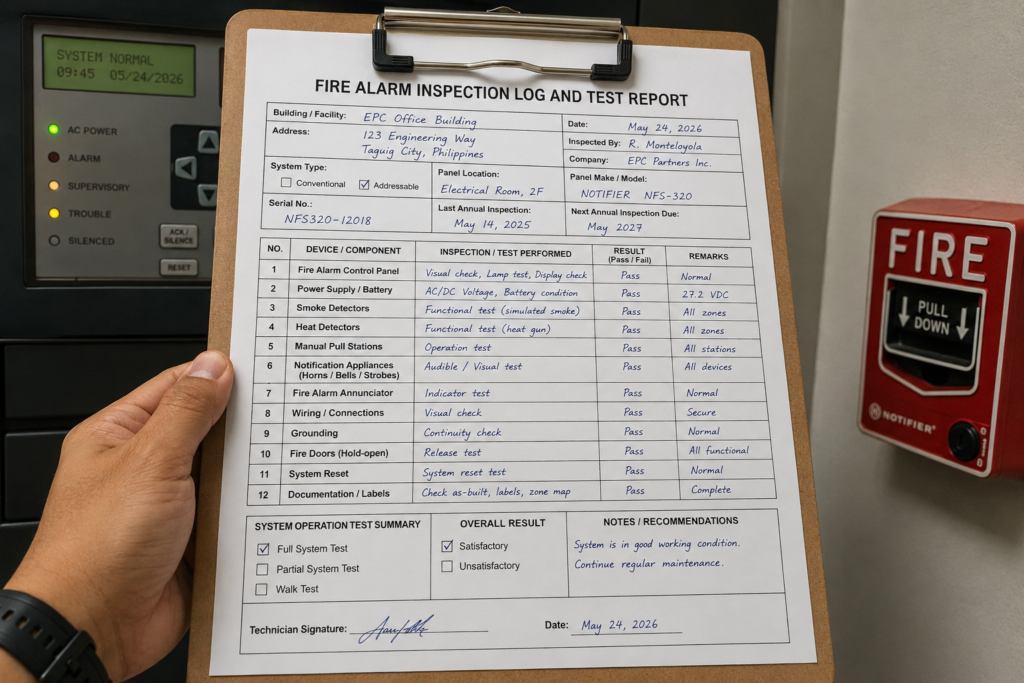 SYSTEM NORMAL
09:45 05/24/2026
AC POWER
ALARM
SUPERVISORY
TROUBLE
SILENCED
ACK/
SILENCE
RESET
FIRE ALARM INSPECTION LOG AND TEST REPORT
Building / Facility: EPC Office Building
Address: 123 Engineering Way
Taguig City, Philippines
Date: May 24, 2026
Inspected By: R. Monteloyola
Company: EPC Partners Inc.
System Type:
Conventional Addressable
Panel Location:
Electrical Room, 2F
Panel Make / Model:
NOTIFIER NFS-320
Serial No.:
NFS320-12018
Last Annual Inspection:
May 14, 2025
Next Annual Inspection Due:
May 2027
NO. DEVICE / COMPONENT INSPECTION / TEST PERFORMED RESULT (Pass / Fail) REMARKS
1 Fire Alarm Control Panel Visual check, Lamp test, Display check Pass Normal
2 Power Supply / Battery AC/DC Voltage, Battery condition Pass 27.2 VDC
3 Smoke Detectors Functional test (simulated smoke) Pass All zones
4 Heat Detectors Functional test (heat gun) Pass All zones
5 Manual Pull Stations Operation test Pass All stations
6 Notification Appliances (Horns / Bells / Strobes) Audible / Visual test Pass All devices
7 Fire Alarm Annunciator Indicator test Pass Normal
8 Wiring / Connections Visual check Pass Secure
9 Grounding Continuity check Pass Normal
10 Fire Doors (Hold-open) Release test Pass All functional
11 System Reset System reset test Pass Normal
12 Documentation / Labels Check as-built, labels, zone map Pass Complete
SYSTEM OPERATION TEST SUMMARY
Full System Test
Partial System Test
Walk Test
OVERALL RESULT
Satisfactory
Unsatisfactory
NOTES / RECOMMENDATIONS
System is in good working condition.
Continue regular maintenance.
Technician Signature:
Date: May 24, 2026
FIRE
PULL
DOWN
NOTIFIER®